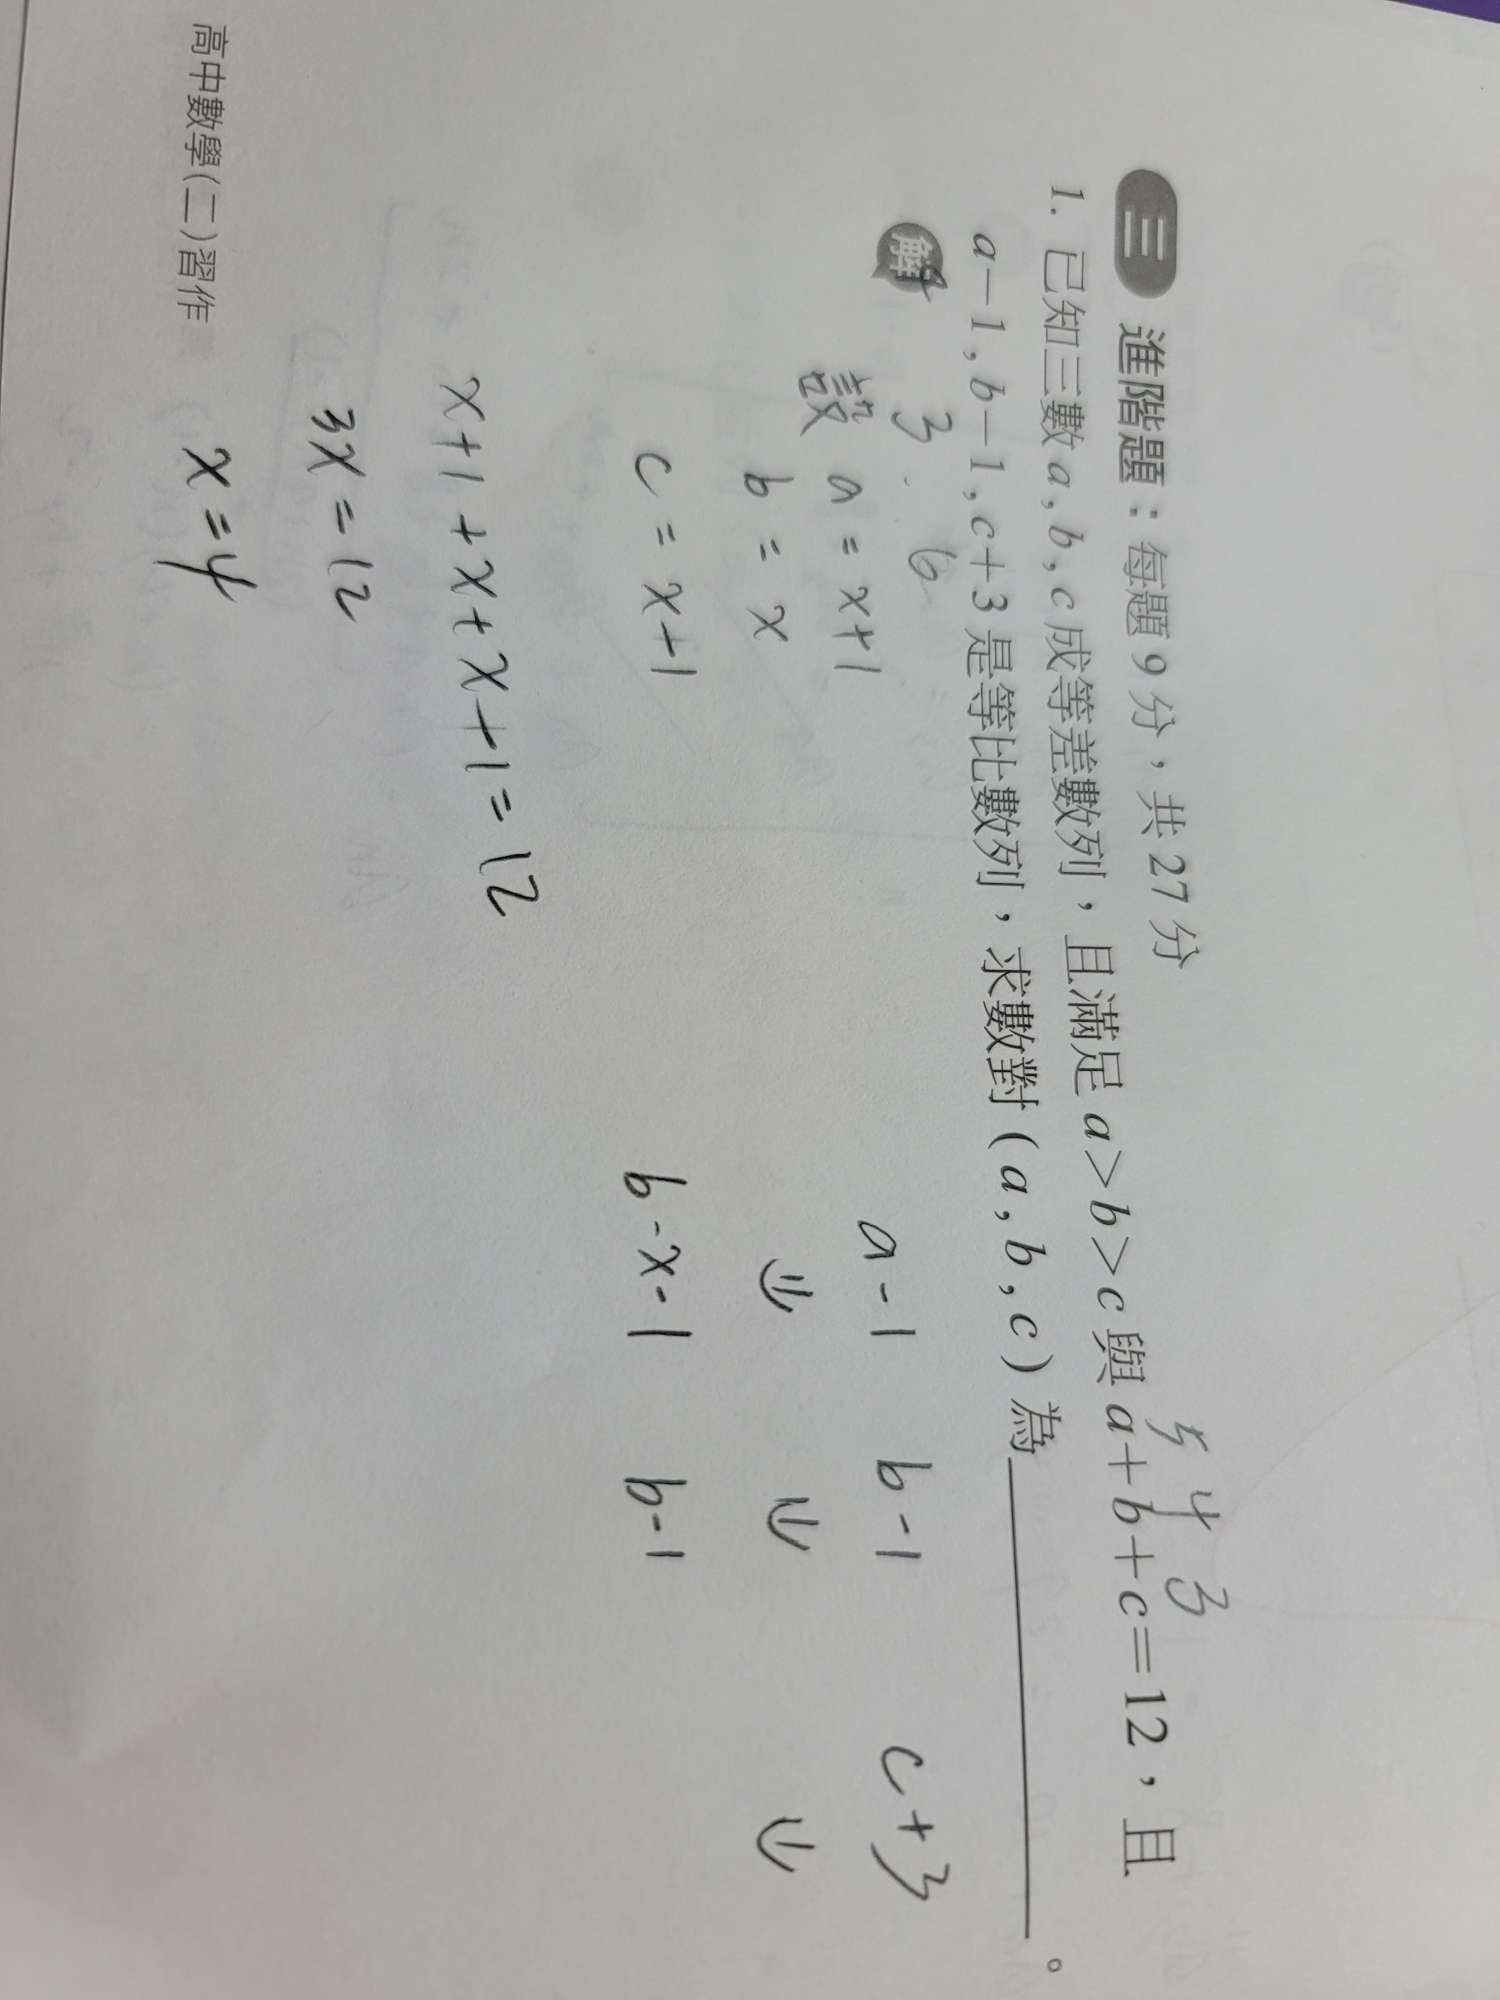 三 進階題：每題9分，共27分
5 4 3
1. 已知三數a,b,c成等差數列，且滿足a>b>c與a+b+c=12，且
a−1,b−1,c+3是等比數列，求數對(a,b,c)為＿＿＿＿。
解
3 6
設 a=x+1
b=x
c=x+1
a-1 b-1 c+3
⇓ ⇓ ⇓
b-x-1 b-1
x+1+x+x-1=12
3x=12
x=4
高中數學(二)習作